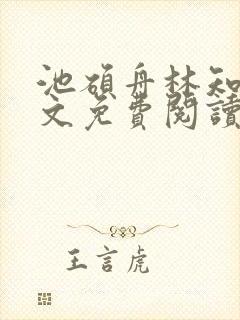 池碩舟林知
文免費閱讀
王言虎